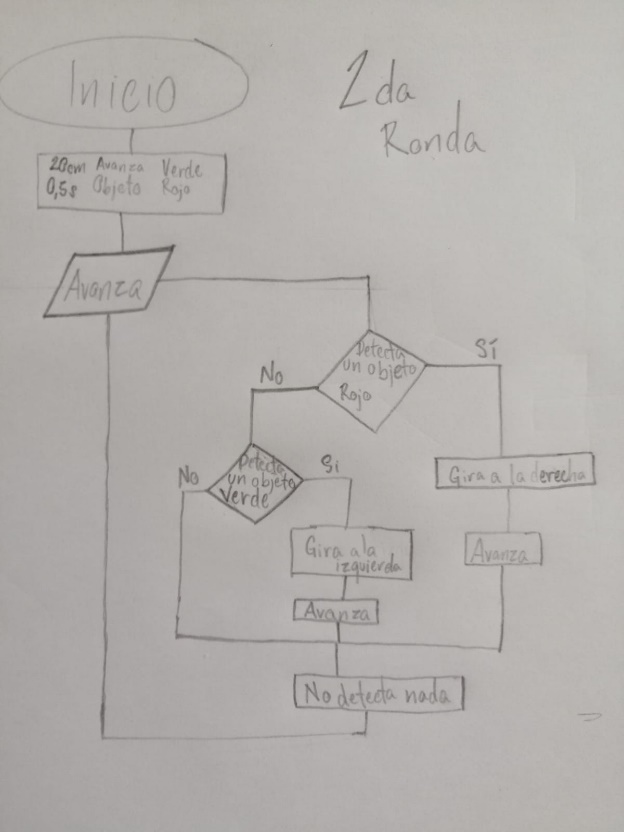 Inicio
2da
Ronda
20cm Avanza Verde
0,5s Objeto Rojo
Avanza
Detecta
un objeto
Rojo
Sí
No
Detecta
un objeto
Verde
No
Si
Gira a la derecha
Gira a la
izquierda
Avanza
Avanza
No detecta nada